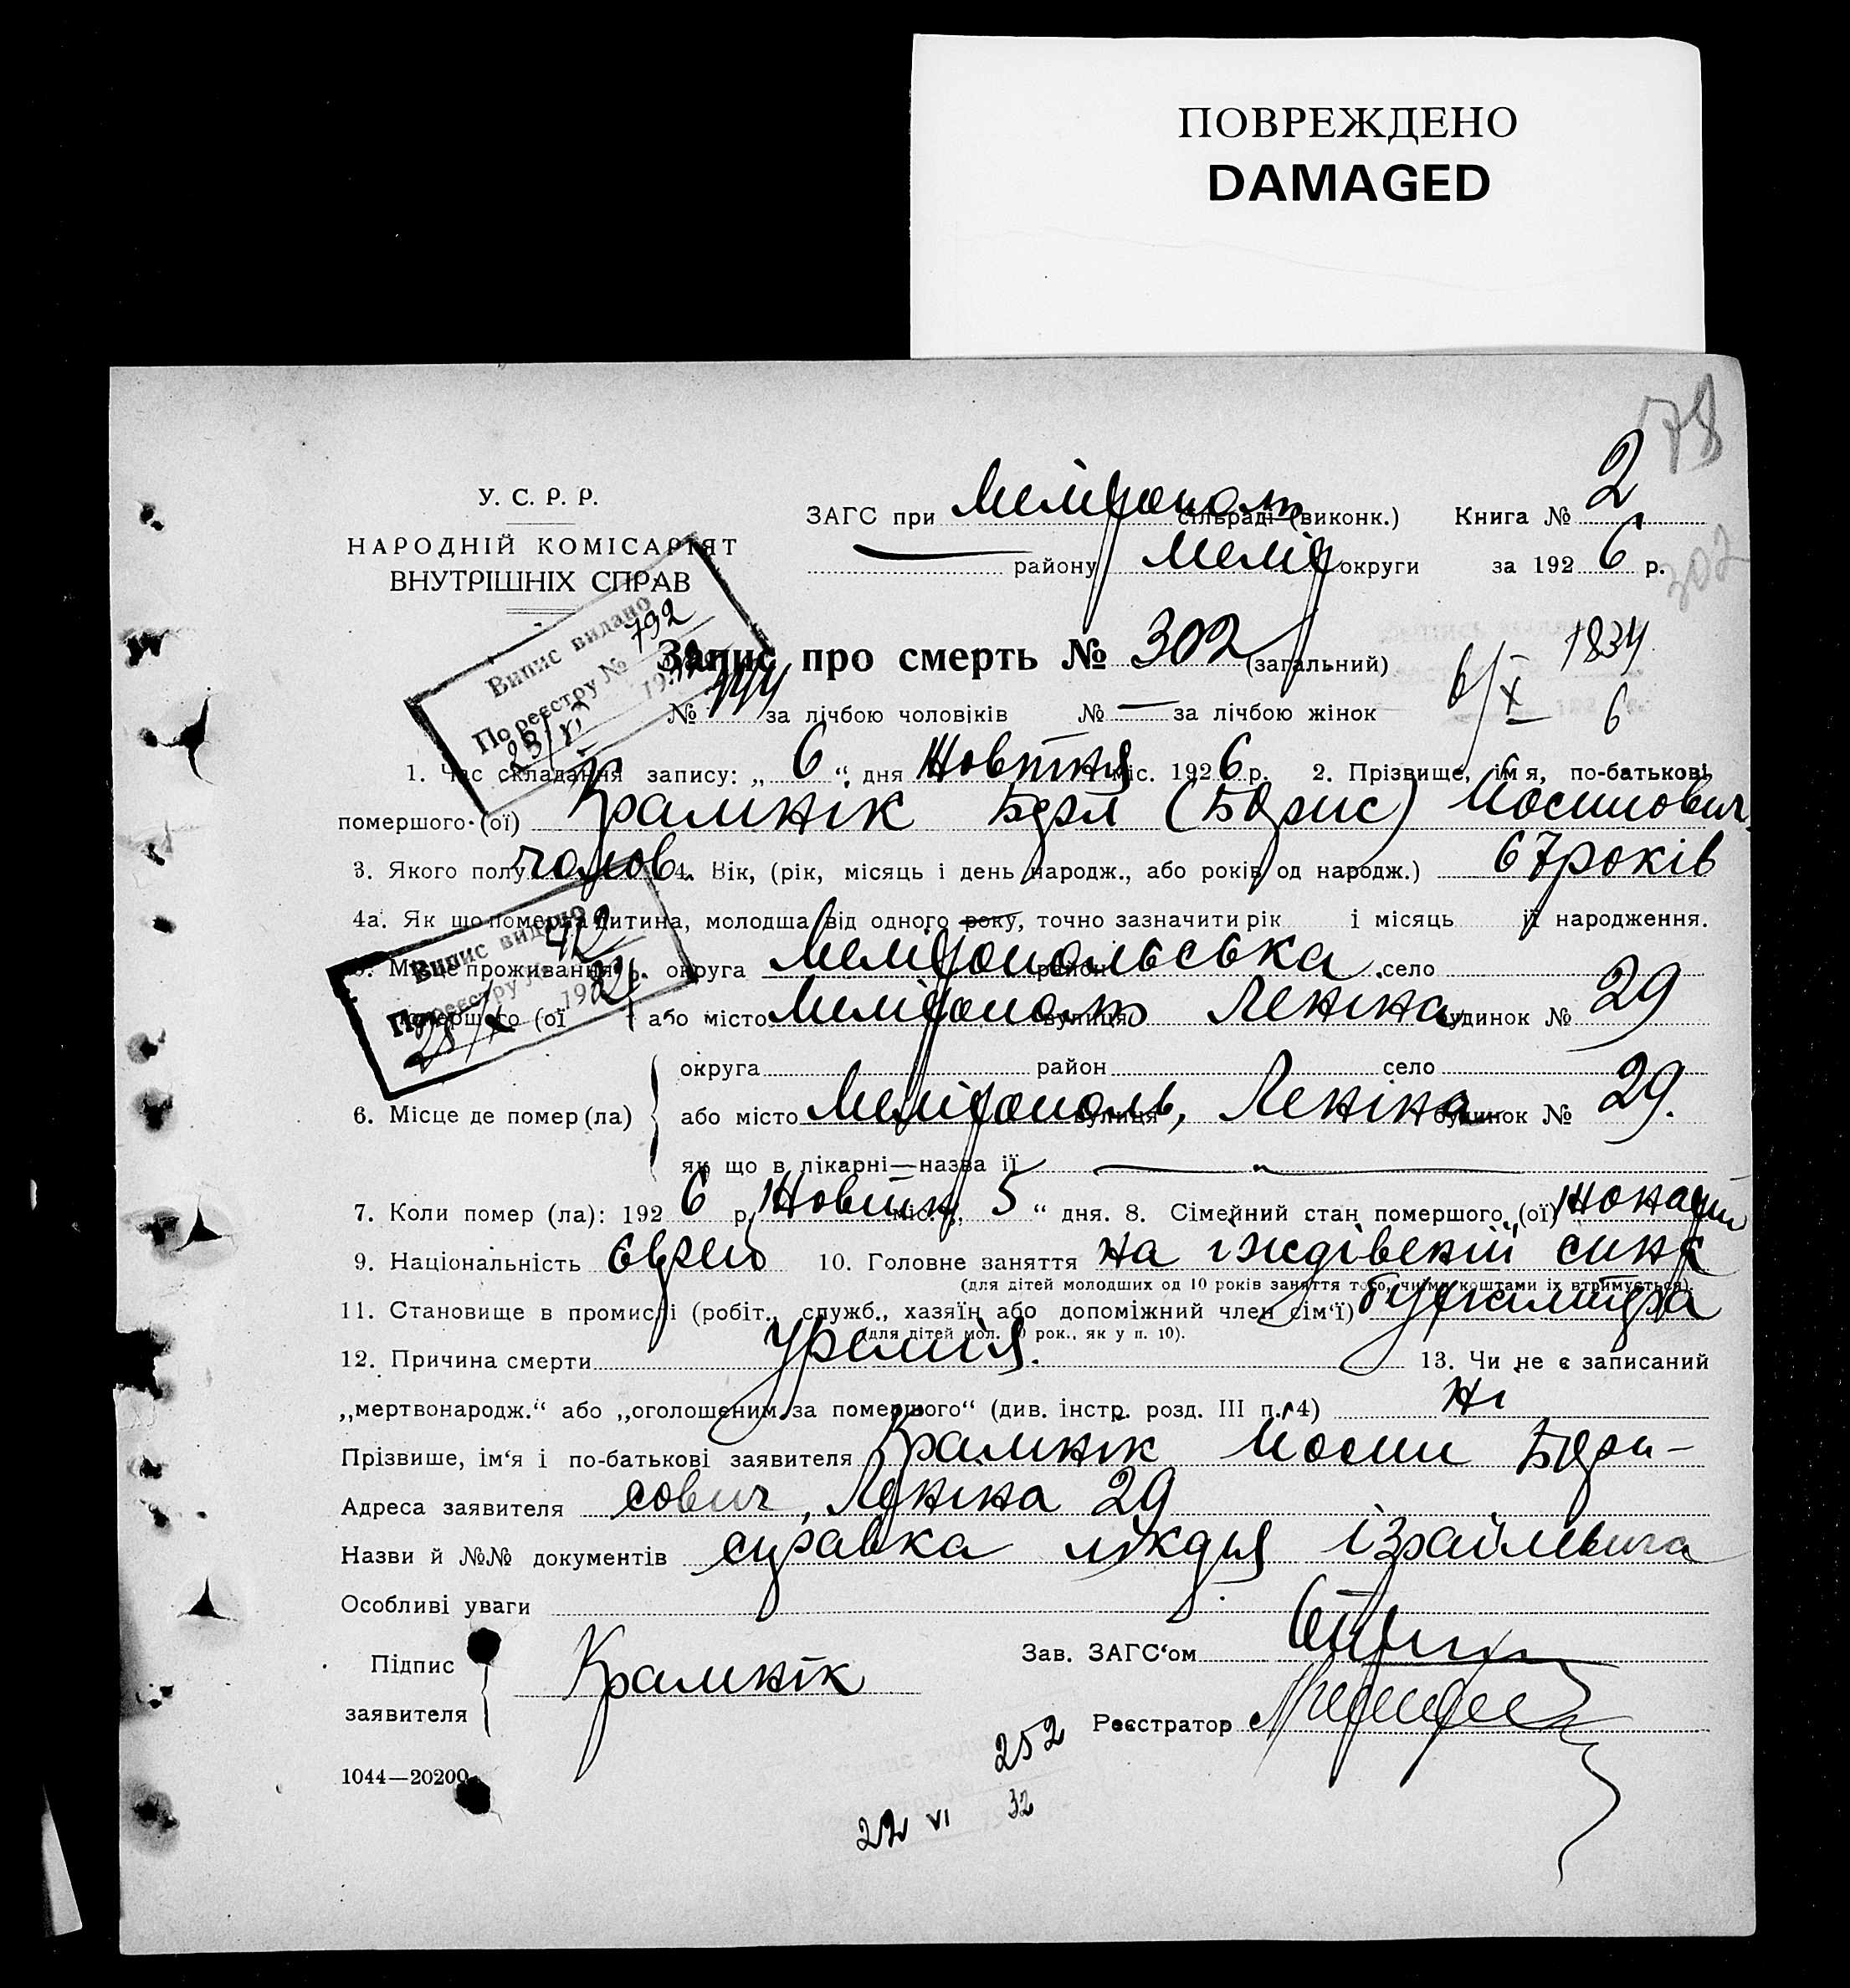 ПОВРЕЖДЕНО
DAMAGED
78
У. С. Р. Р.
НАРОДНІЙ КОМІСАРІЯТ
ВНУТРІШНІХ СПРАВ
ЗАГС при Мелітополь сільраді (виконк.) Книга № 2
району Меліт округи за 1926 р.
302
Випис видано
По реєстру № 792
Запис про смерть № 302 (загальний)
6/X 1834
6
№ за лічбою чоловіків № — за лічбою жінок
1. Час складання запису: „ 6 “ дня Жовтня міс. 1926 р. 2. Прізвище, імя, по-батькові
помершого (ої) Крамнік Берл (Борис) Йосипович
3. Якого полу чолов 4. Вік, (рік, місяць і день народж., або років од народж.) 67 років
4а. Як що померла дитина, молодша від одного року, точно зазначити рік і місяць її народження.
Випис видано
По реєстру
5. Місце проживання округа Мелітопольська район село
помершого (ої або місто Мелітополь вулиця Леніна будинок № 29
округа район село
6. Місце де помер (ла) або місто Мелітополь, вулиця Леніна будинок № 29.
як що в лікарні—назва її
7. Коли помер (ла): 1926 р. Жовтня міс. „ 5 “ дня. 8. Сімейний стан помершого (ої)
9. Національність Єврей 10. Головне заняття на іждівенкі сина
(для дітей молодших од 10 років заняття того, чиїми коштами їх втримується).
11. Становище в промислі (робіт., служб., хазяїн або допоміжний член сім'ї) бухгалтера
(для дітей мол. 10 рок., як у п. 10).
12. Причина смерти Уремія. 13. Чи не є записаний
„мертвонародж.“ або „оголошеним за помершого“ (див. інстр. розд. III п. 4) Ні
Прізвище, ім'я і по-батькові заявителя Крамнік Йосип Бори-
Адреса заявителя сович, Леніна 29
Назви й №№ документів справка лікаря Ізраілевича
Особливі уваги
Підпис
заявителя Крамнік
Зав. ЗАГС'ом
Реєстратор
1044—20200
252
22 VI 32